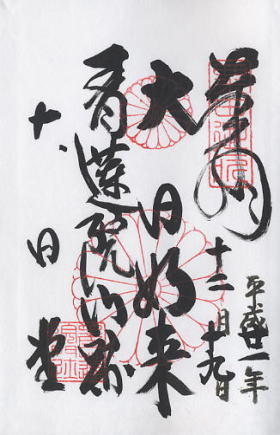 平成廿一年
十二月十九日
大日如来
青蓮院門跡
大日堂